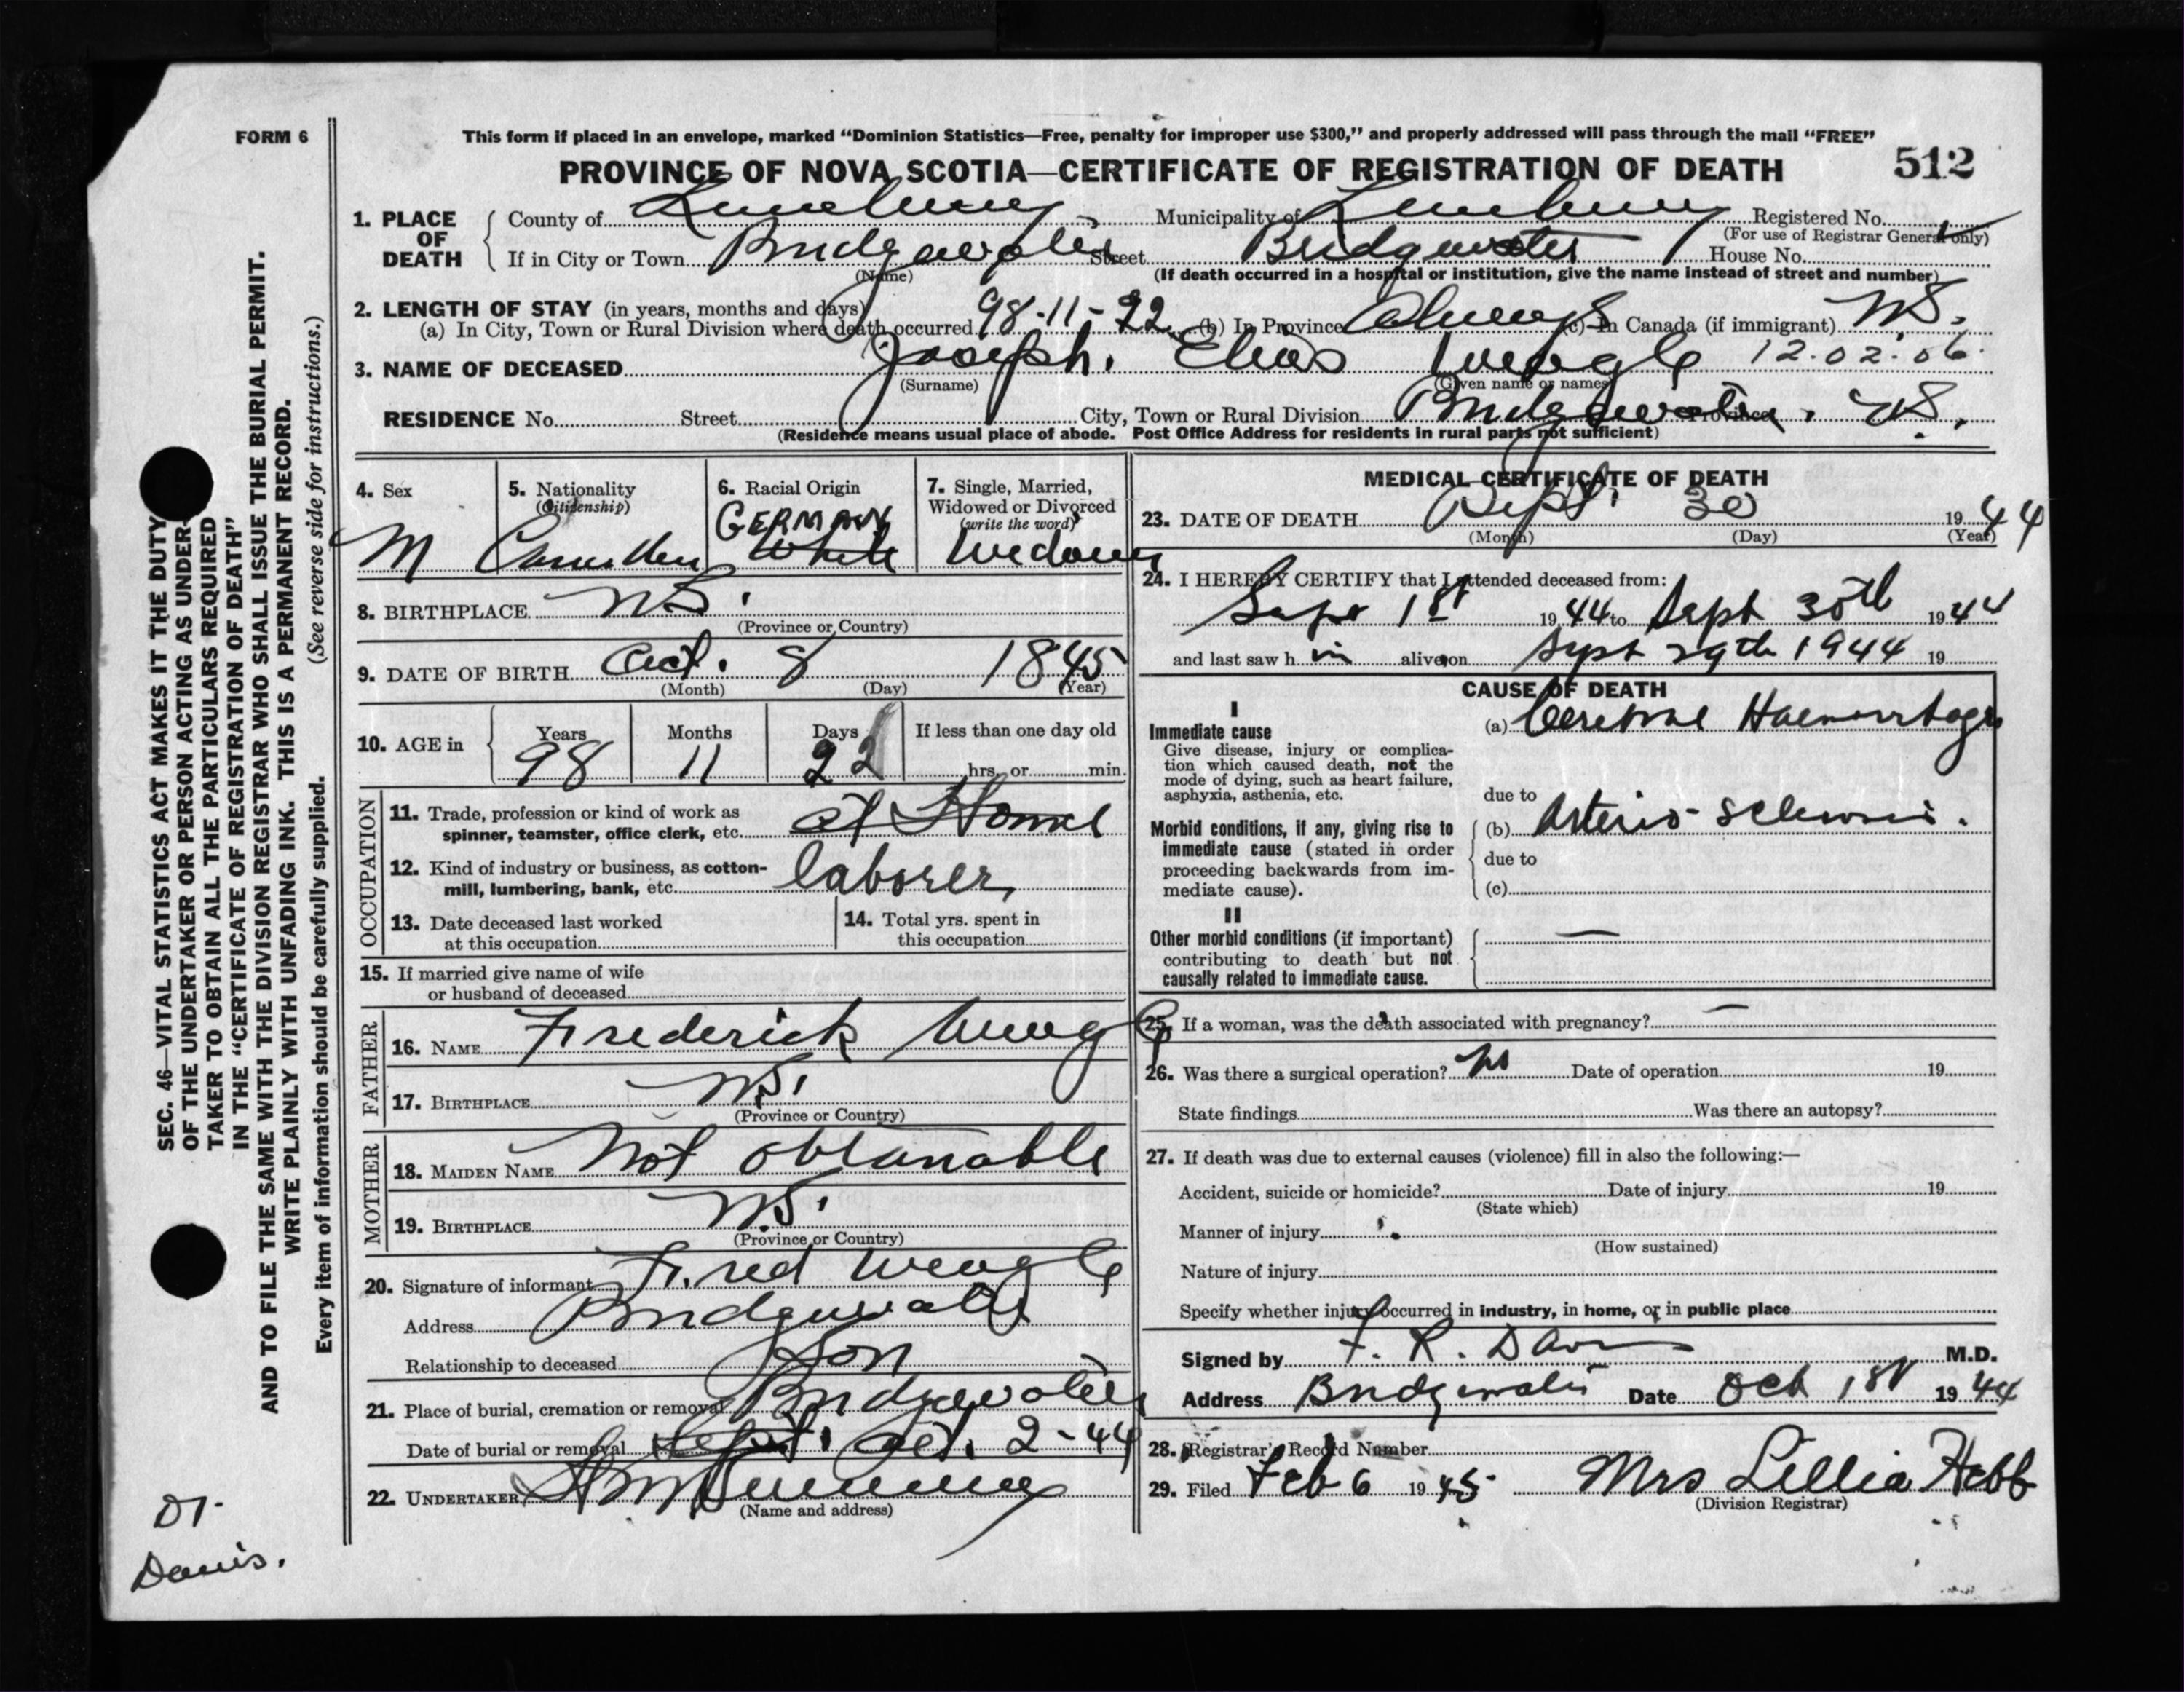 FORM 6
This form if placed in an envelope, marked “Dominion Statistics—Free, penalty for improper use $300,” and properly addressed will pass through the mail “FREE”
PROVINCE OF NOVA SCOTIA—CERTIFICATE OF REGISTRATION OF DEATH
512
1. PLACE OF DEATH
County of Lunenburg Municipality of Lunenburg Registered No.
(For use of Registrar General only)
If in City or Town Bridgewater Street Bridgewater House No.
(Name) (If death occurred in a hospital or institution, give the name instead of street and number)
2. LENGTH OF STAY (in years, months and days)
(a) In City, Town or Rural Division where death occurred 98-11-22 (b) In Province Always (c) In Canada (if immigrant) N.S.
3. NAME OF DECEASED Joseph. Elias Weagle 12.02.06
(Surname) (Given name or names)
RESIDENCE No. Street City, Town or Rural Division Bridgewater. Province N.S.
(Residence means usual place of abode. Post Office Address for residents in rural parts not sufficient)
4. Sex
M
5. Nationality
(Citizenship)
Canadian
6. Racial Origin
GERMAN
White
7. Single, Married,
Widowed or Divorced
(write the word)
Widower
8. BIRTHPLACE N.S.
(Province or Country)
9. DATE OF BIRTH Oct. 8 1845
(Month) (Day) (Year)
10. AGE in
Years Months Days If less than one day old
98 11 22 hrs. or min.
OCCUPATION
11. Trade, profession or kind of work as
spinner, teamster, office clerk, etc. at Home
12. Kind of industry or business, as cotton-
mill, lumbering, bank, etc. laborer
13. Date deceased last worked
at this occupation
14. Total yrs. spent in
this occupation
15. If married give name of wife
or husband of deceased
FATHER
16. NAME Frederick Weagle
17. BIRTHPLACE N.S.
(Province or Country)
MOTHER
18. MAIDEN NAME Not obtanable
19. BIRTHPLACE N.S.
(Province or Country)
20. Signature of informant Fred Weagle
Address Bridgewater
Relationship to deceased Son
21. Place of burial, cremation or removal Bridgewater
Date of burial or removal Sept. Oct. 2-44
22. UNDERTAKER
(Name and address)
MEDICAL CERTIFICATE OF DEATH
23. DATE OF DEATH Sept. 30 1944
(Month) (Day) (Year)
24. I HEREBY CERTIFY that I attended deceased from:
Sept 1st 1944 to Sept 30th 1944
and last saw h im alive on Sept 29th 1944 19
CAUSE OF DEATH
I
Immediate cause
Give disease, injury or complica-
tion which caused death, not the
mode of dying, such as heart failure,
asphyxia, asthenia, etc.
(a) Cerebral Haemorrhage
due to
Morbid conditions, if any, giving rise to
immediate cause (stated in order
proceeding backwards from im-
mediate cause).
(b) Arterio-sclerosis.
due to
(c)
II
Other morbid conditions (if important)
contributing to death but not
causally related to immediate cause.
25. If a woman, was the death associated with pregnancy? —
26. Was there a surgical operation? no Date of operation 19
State findings Was there an autopsy?
27. If death was due to external causes (violence) fill in also the following:—
Accident, suicide or homicide? Date of injury 19
(State which)
Manner of injury
(How sustained)
Nature of injury
Specify whether injury occurred in industry, in home, or in public place
Signed by F. R. Davis M.D.
Address Bridgewater Date Oct 1st 1944
28. Registrar's Record Number
29. Filed Feb 6 1945 Mrs Lillia Hebb
(Division Registrar)
SEC. 46—VITAL STATISTICS ACT MAKES IT THE DUTY
OF THE UNDERTAKER OR PERSON ACTING AS UNDER-
TAKER TO OBTAIN ALL THE PARTICULARS REQUIRED
IN THE “CERTIFICATE OF REGISTRATION OF DEATH”
AND TO FILE THE SAME WITH THE DIVISION REGISTRAR WHO SHALL ISSUE THE BURIAL PERMIT.
WRITE PLAINLY WITH UNFADING INK. THIS IS A PERMANENT RECORD.
Every item of information should be carefully supplied. (See reverse side for instructions.)
Dr.
Davis.